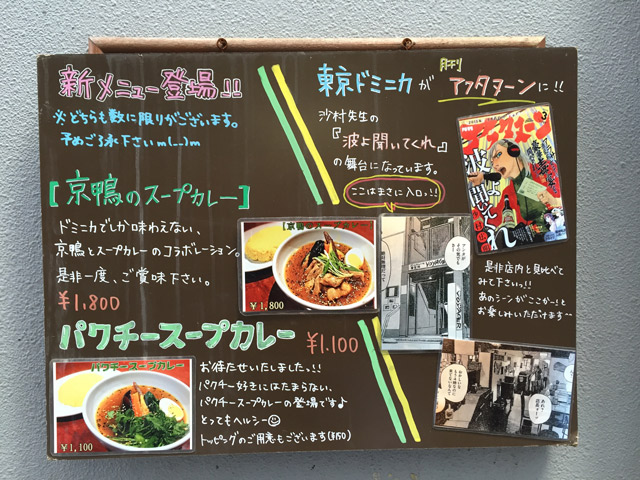 新メニュー登場!!
※どちらも数に限りがございます。
予めご了承下さいm(_ _)m
[京鴨のスープカレー]
ドミニカでしか味わえない、
京鴨とスープカレーのコラボレーション。
是非一度、ご賞味下さい。
¥1,800
¥1,800
パクチースープカレー ¥1,100
パクチースープカレー
¥1,100
お待たせいたしました。!!
パクチー好きにはたまらない、
パクチースープカレーの登場です♪
とってもヘルシー☺
トッピングのご用意もございます(¥150)
東京ドミニカが
月刊
アフタヌーンに!!
沙村先生の
『波よ聞いてくれ』
の舞台になっています。
ここはまさに入口。!!
アフタヌーン
3
波よ聞いてくれ
是非店内と見比べて
みて下さいっ!!
あのシーンがここかー!と
お楽しみいただけます--